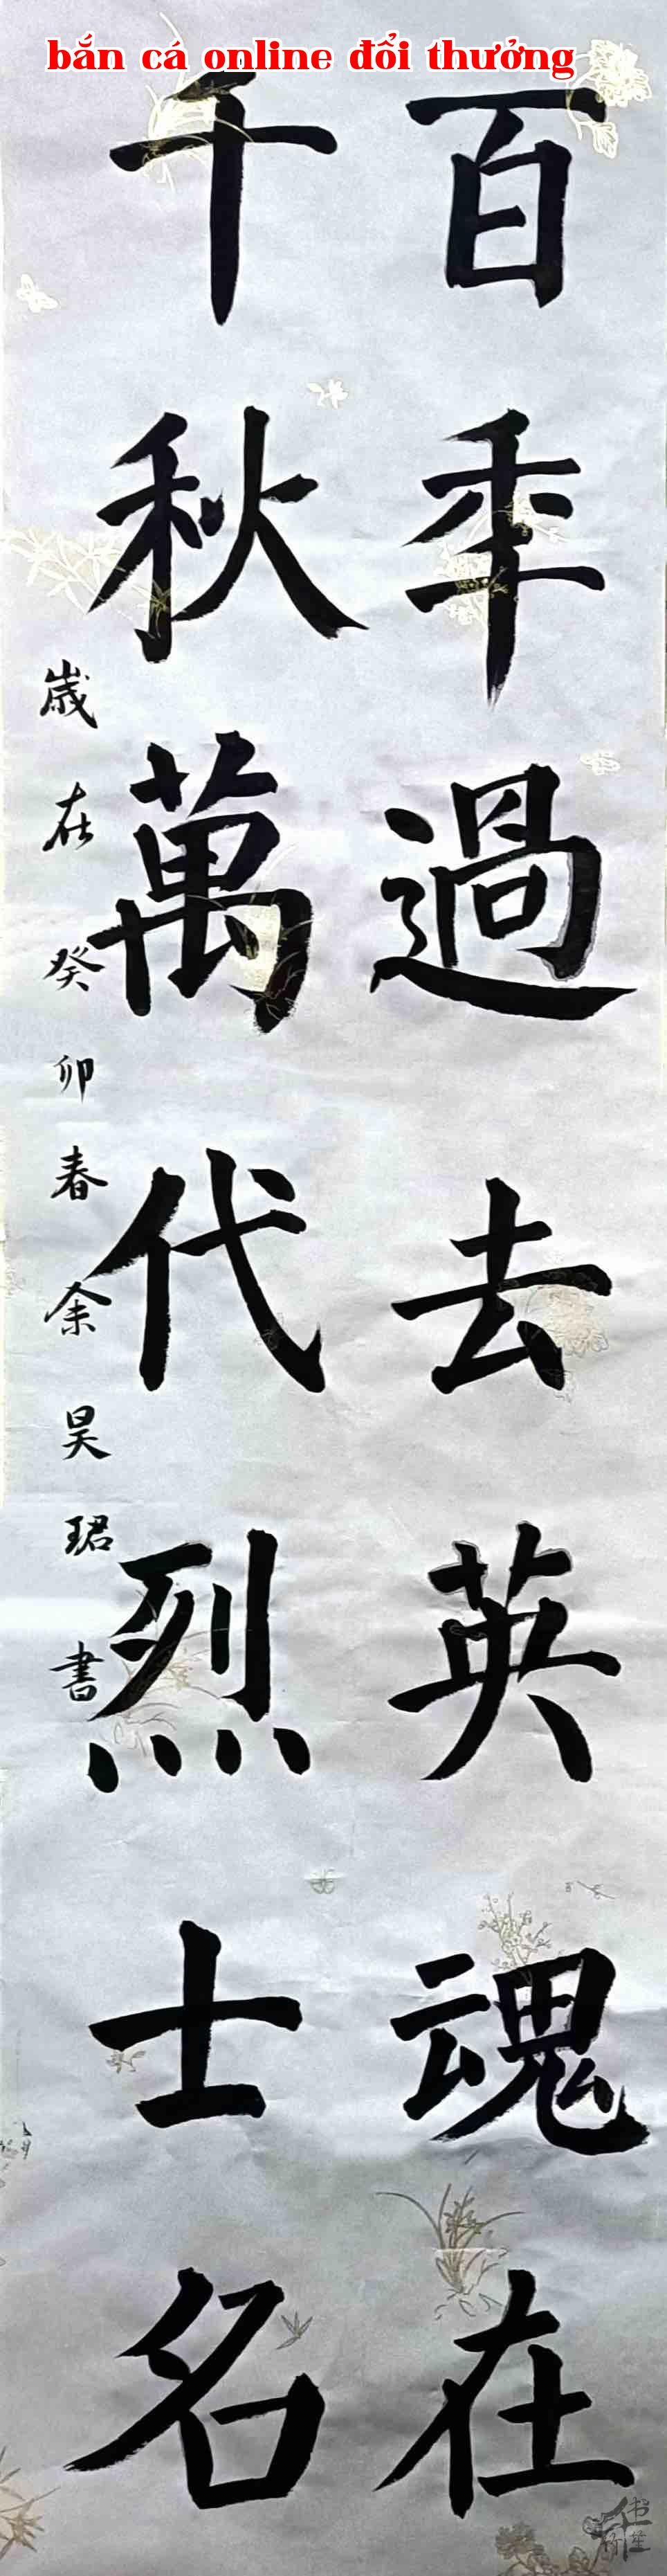 bắn cá online đổi thưởng
百年過去英魂在
千秋萬代烈士名
歲在癸卯春余昊珺書